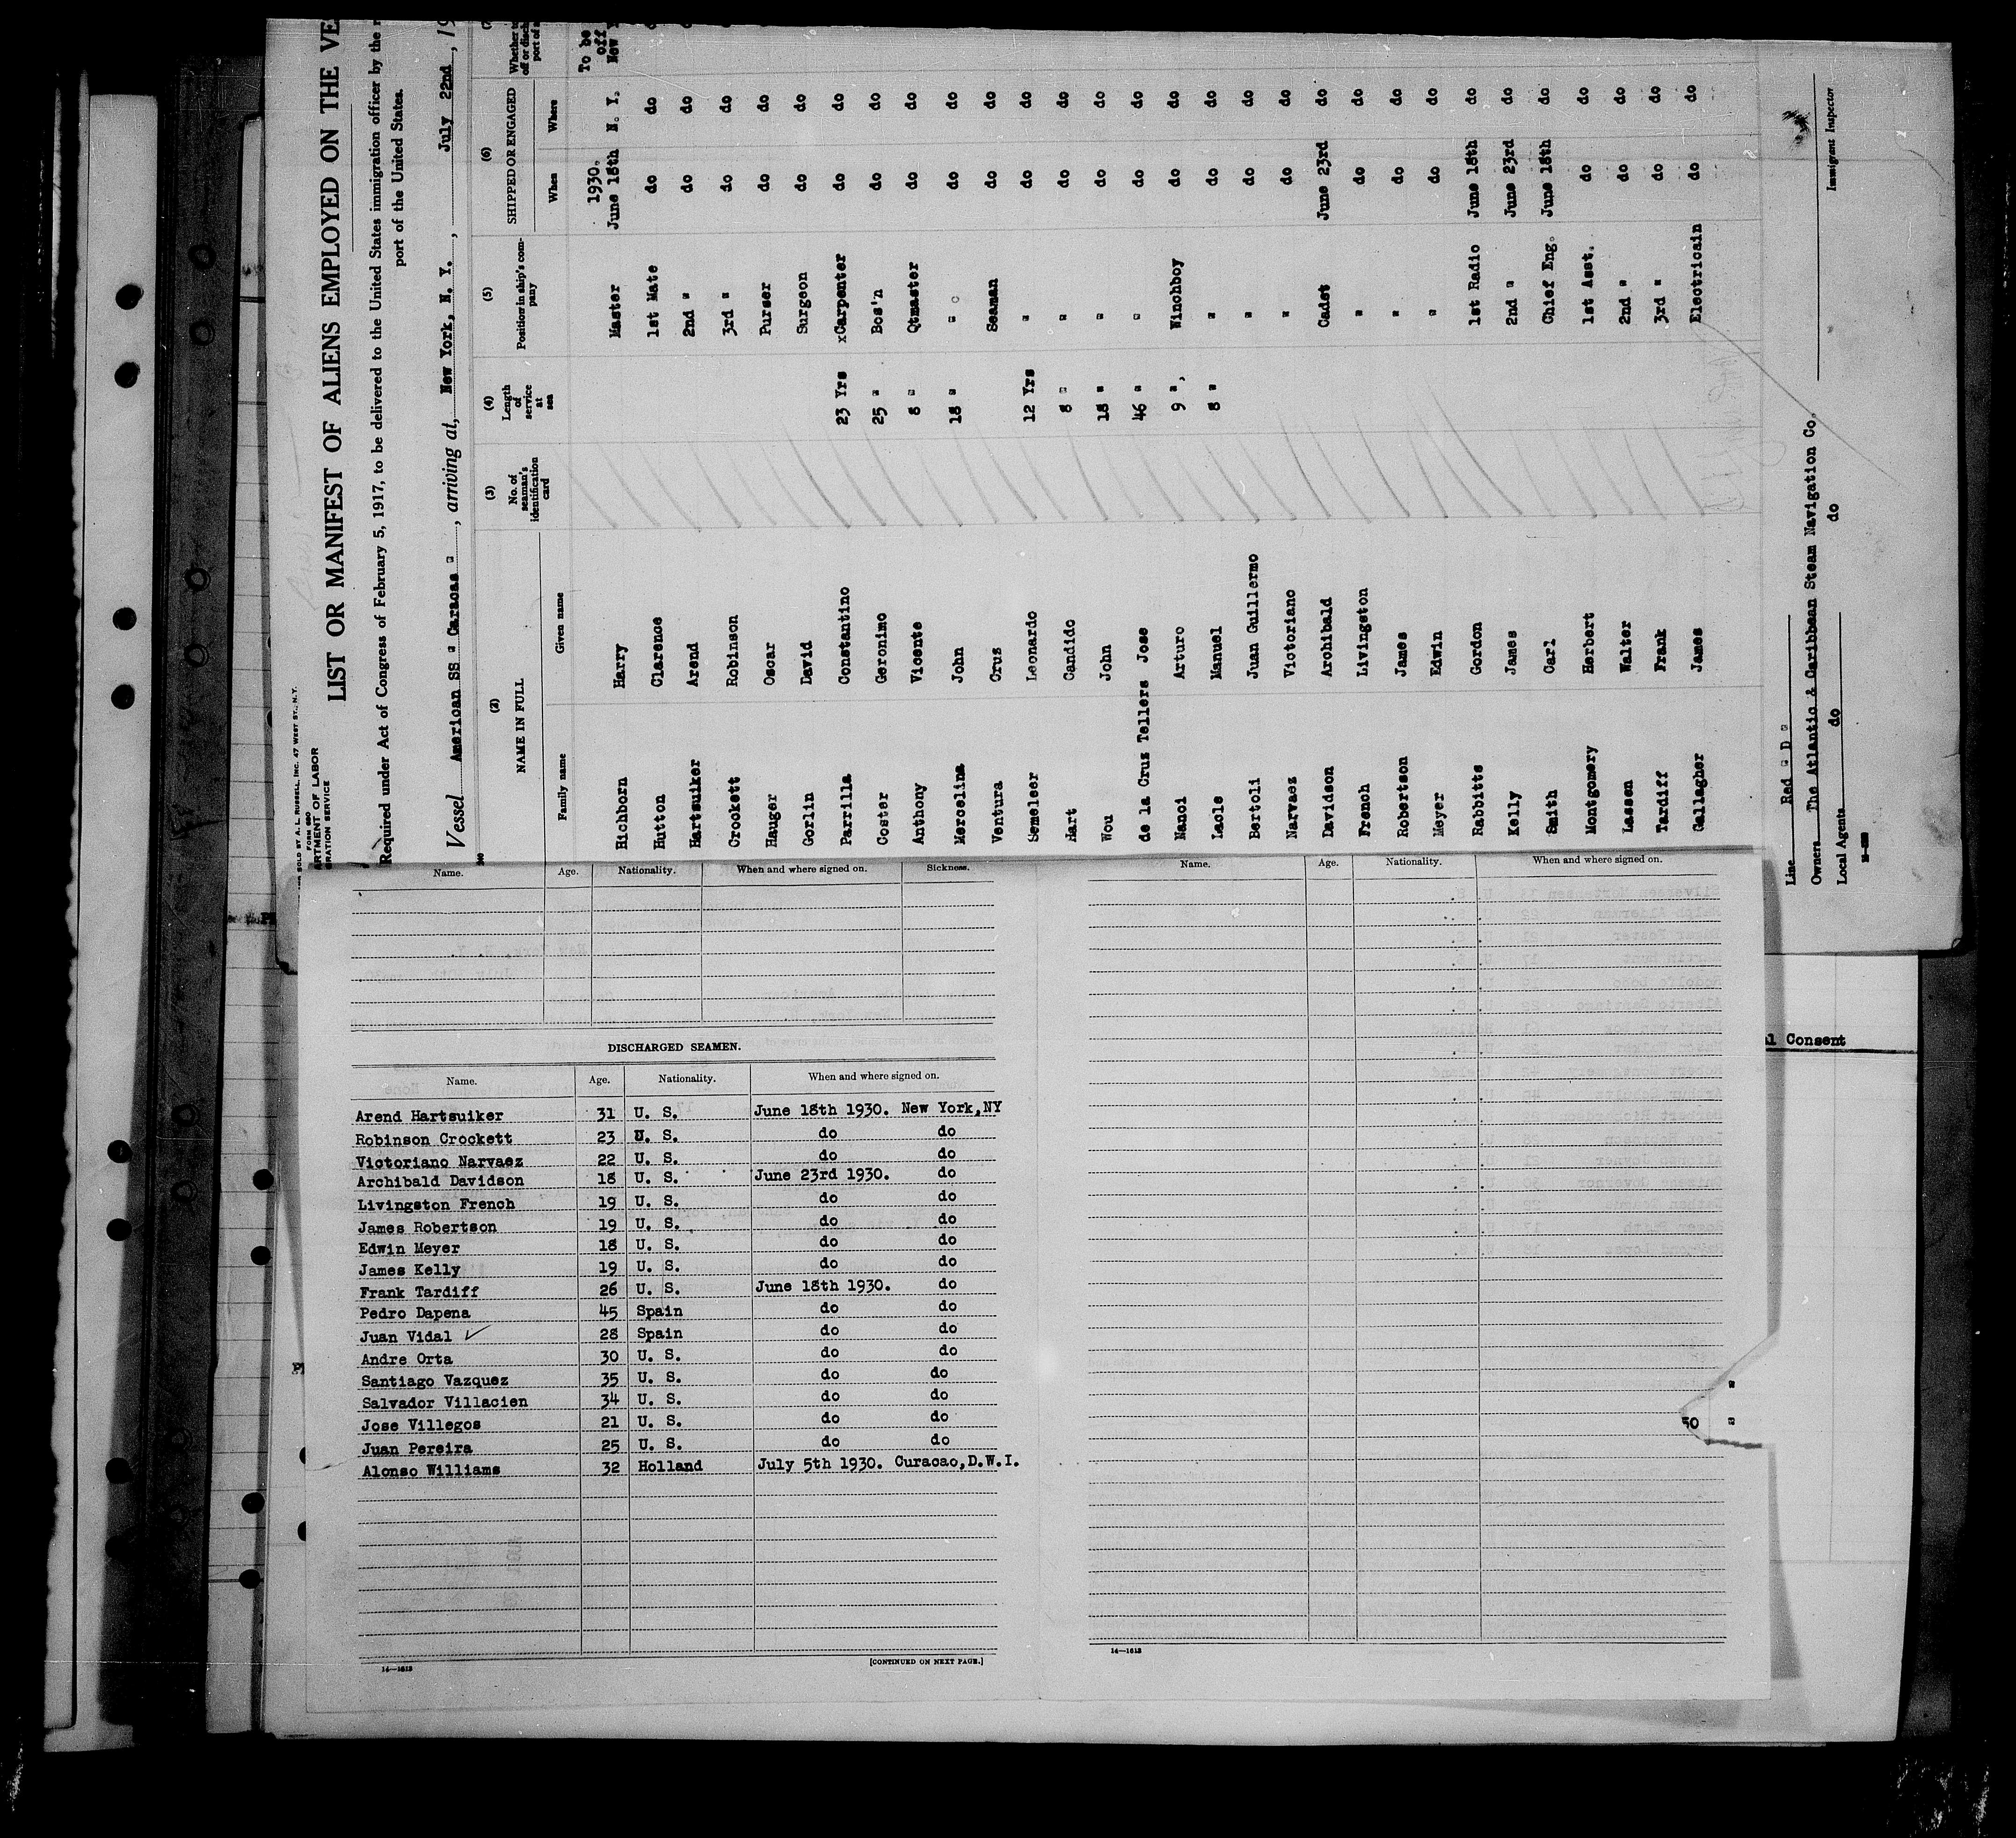 SOLD BY A. L. RUSSELL, INC. 47 WEST ST., N.Y.
FORM 680
ARTMENT OF LABOR
GRATION SERVICE
LIST OR MANIFEST OF ALIENS EMPLOYED ON THE VE
Required under Act of Congress of February 5, 1917, to be delivered to the United States immigration officer by the
port of the United States.
Vessel American SS " Caracas " , arriving at, New York, N. Y. , July 22nd , 19
(2) (3) (4) (5) (6)
NAME IN FULL No. of seaman's identification card Length of service at sea Position in ship's company SHIPPED OR ENGAGED
Family name Given name When Where
1930. To be off
Richborn Harry Master June 18th N. Y. New
Hutton Clarence 1st Mate do do
Hartsuiker Arend 2nd " do do
Crockett Robinson 3rd " do do
Hauger Oscar Purser do do
Gorlin David Surgeon do do
Parrilla Constantino 23 Yrs xCarpenter do do
Coster Geronimo 25 " Bos'n do do
Anthony Vicente 8 " Qtmaster do do
Mercelina John 18 " " do do
Ventura Cruz Seaman do do
Semeleer Leonardo 12 Yrs " do do
Hart Candido 8 " " do do
Wou John 18 " " do do
de la Cruz Tellers Jose 46 " " do do
Nanoi Arturo 9 " Winchboy do do
Lacle Manuel 8 " " do do
Bertoli Juan Guillermo " do do
Narvaez Victoriano " do do
Davidson Archibald Cadet June 23rd do
French Livingston " do do
Robertson James " do do
Meyer Edwin " do do
Rabbitts Gordon 1st Radio June 18th do
Kelly James 2nd " June 23rd do
Smith Carl Chief Eng. June 18th do
Montgomery Herbert 1st Asst. do do
Lassen Walter 2nd " do do
Tardiff Frank 3rd " do do
Gallagher James Electricain do do
Line Red " D "
Owners The Atlantic & Caribbean Steam Navigation Co.
Local Agents do do
Immigrant Inspector
Name. Age. Nationality. When and where signed on. Sickness.
DISCHARGED SEAMEN.
Name. Age. Nationality. When and where signed on.
Arend Hartsuiker 31 U. S. June 18th 1930. New York,NY
Robinson Crockett 23 U. S. do do
Victoriano Narvaez 22 U. S. do do
Archibald Davidson 18 U. S. June 23rd 1930. do
Livingston French 19 U. S. do do
James Robertson 19 U. S. do do
Edwin Meyer 18 U. S. do do
James Kelly 19 U. S. do do
Frank Tardiff 26 U. S. June 18th 1930. do
Pedro Dapena 45 Spain do do
Juan Vidal ✓ 28 Spain do do
Andre Orta 30 U. S. do do
Santiago Vazquez 35 U. S. do do
Salvador Villacien 34 U. S. do do
Jose Villegos 21 U. S. do do
Juan Pereira 25 U. S. do do
Alonso Williams 32 Holland July 5th 1930. Curacao,D.W.I.
14—1613
[CONTINUED ON NEXT PAGE.]
Name. Age. Nationality. When and where signed on.
14—1613
al Consent
"
50 "